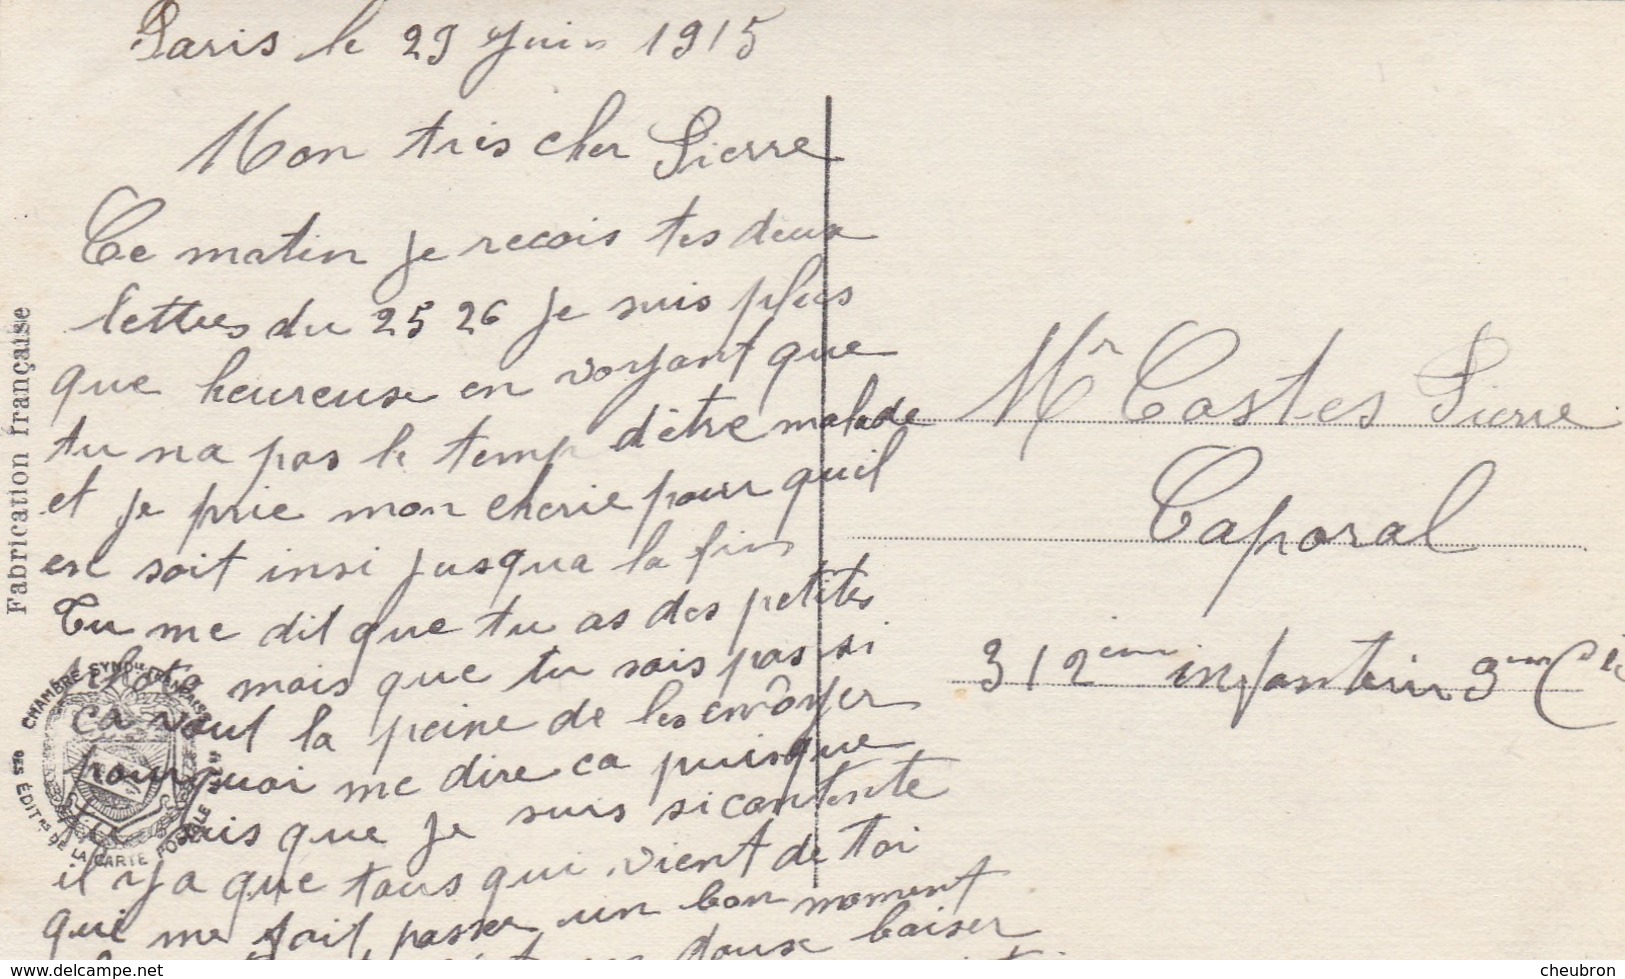 Paris le 29 Juin 1915
Mon tres cher Pierre
Ce matin je recois tes deux
lettres du 25 26 je suis plus
que heureuse en voyant que
tu na pas le temp d'être malade
et je prie mon cherie pour quil
en soit insi jusqua la fin
Tu me dit que tu as des petites
photo mais que tu sais pas si
ca vaut la peine de les envôyer
pourquoi me dire ca puisque
tu sais que je suis si contente
il y a que tous qui vient de toi
qui me fait passer un bon moment
doux baiser
Mr Costes Pierre
Caporal
312ème infanterie 9em Cie
Fabrication française
CHAMBRE SYNDle FRANÇAISE
DES ÉDITRS DE LA CARTE POSTALE
www.delcampe.net
cheubron